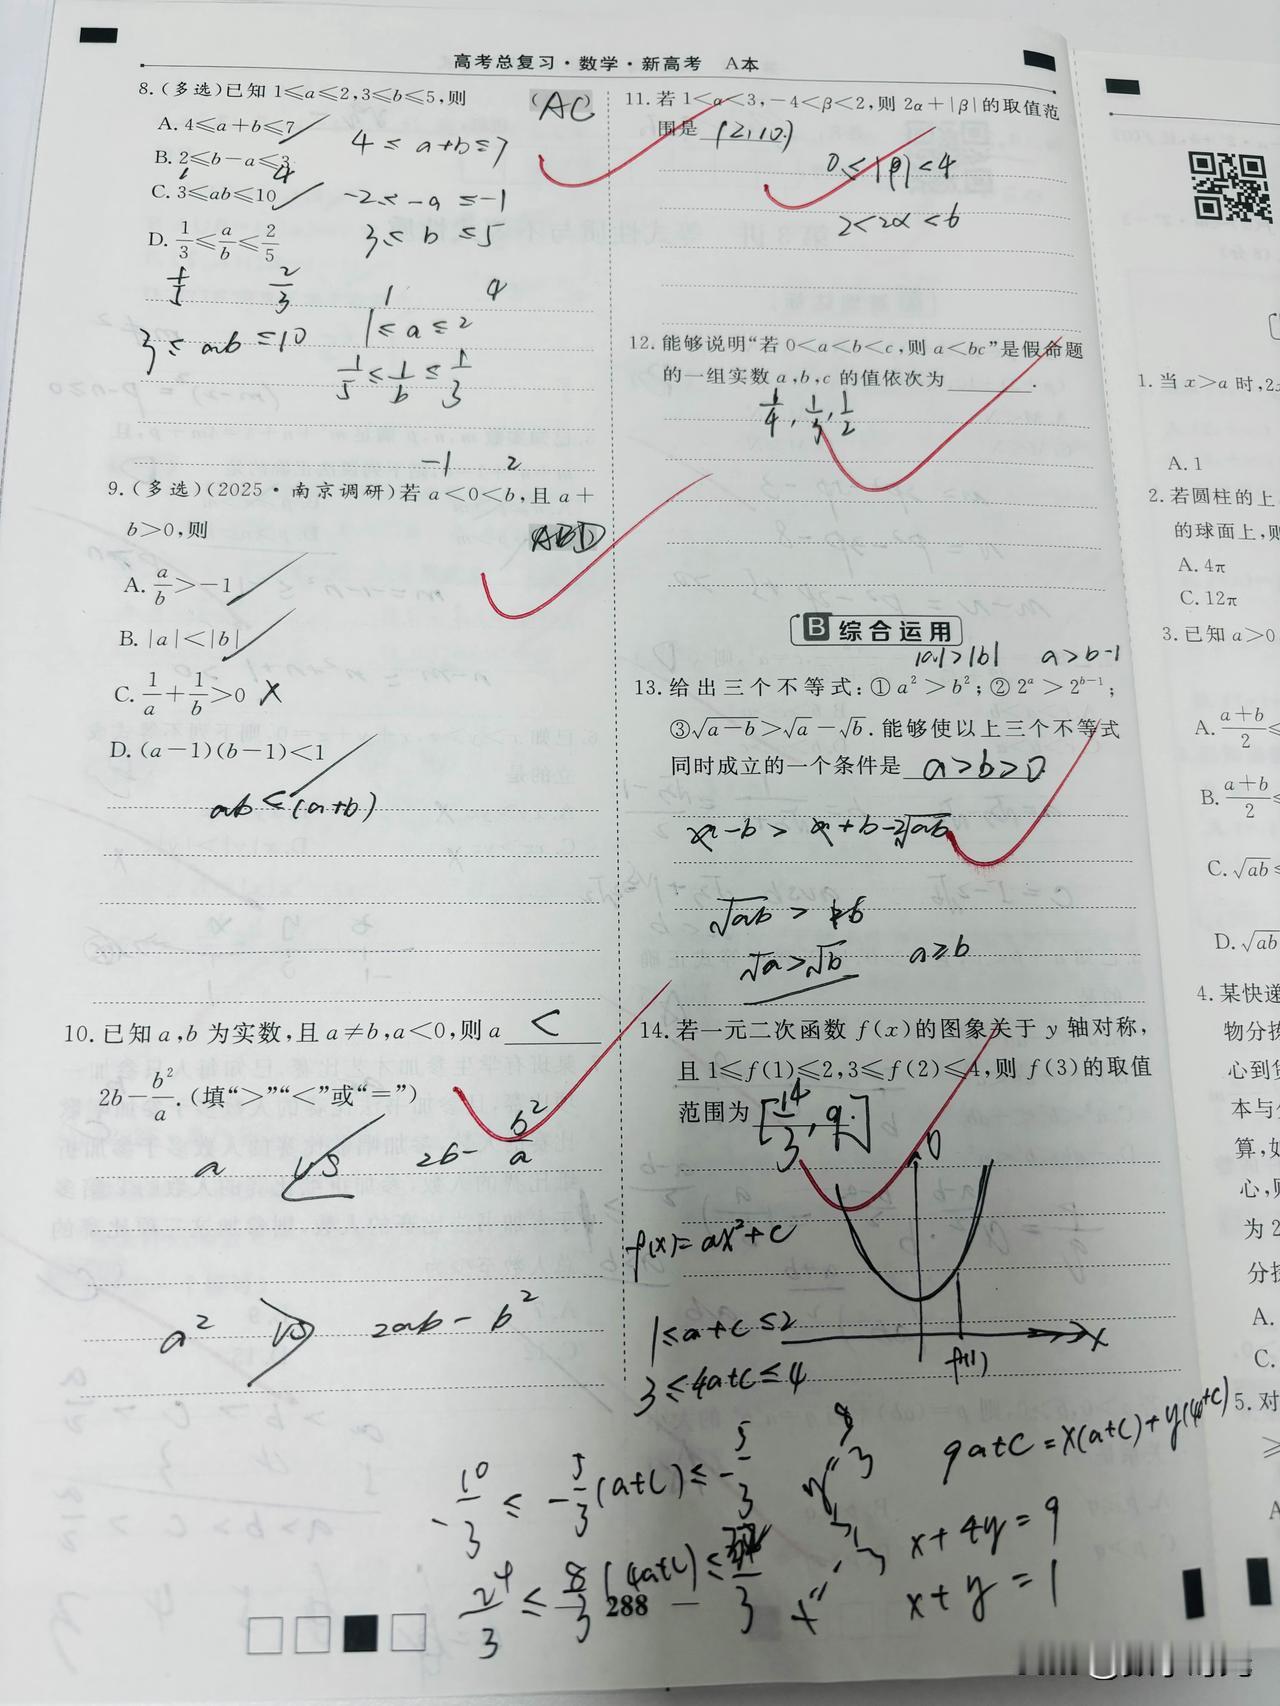 高考总复习·数学·新高考 A本
8.(多选)已知1≤a≤2,3≤b≤5,则 (AC)
A. 4≤a+b≤7
4≤a+b≤7
B. 2≤b-a≤3
1 4
C. 3≤ab≤10
-2≤-a≤-1
D. 1/3≤a/b≤2/5
3≤b≤5
1/5 2/3
1 4
3≤ab≤10
1≤a≤2
1/5≤1/b≤1/3
-1 2
9.(多选)(2025·南京调研)若a<0<b,且a+
b>0,则
ABD
A. a/b>-1
B. |a|<|b|
C. 1/a+1/b>0 ×
D. (a-1)(b-1)<1
ab<(a+b)
10. 已知a,b为实数,且a≠b,a<0,则a <
2b-b²/a.(填“>”“<”或“=”)
a VS 2b-b²/a
a² VS 2ab-b²
11. 若1<α<3,-4<β<2,则2α+|β|的取值范
围是 (2,10).
0≤|β|<4
2<2α<6
12. 能够说明“若0<a<b<c,则a<bc”是假命题
的一组实数a,b,c的值依次为______.
1/4,1/3,1/2
B 综合运用
|a|>|b| a>b-1
13. 给出三个不等式:①a²>b²;②2ᵃ>2ᵇ⁻¹;
③√(a-b)>√a-√b. 能够使以上三个不等式
同时成立的一个条件是 a>b>0.
a-b>a+b-2√ab
√ab>b
√a>√b a≥b
14. 若一元二次函数f(x)的图象关于y轴对称,
且1≤f(1)≤2,3≤f(2)≤4,则f(3)的取值
范围为 [14/3,9].
f(x)=ax²+c
1≤a+c≤2
x
3≤4a+c≤4
f(1)
9a+c=x(a+c)+y(4a+c)
-10/3≤-5/3(a+c)≤-5/3
x+4y=9
24/3≤8/3(4a+c)≤
x+y=1
288
1. 当x>a时,2
A. 1
2. 若圆柱的上
的球面上,则
A. 4π
C. 12π
3. 已知a>0
A. (a+b)/2
B. (a+b)/2≤
C. √ab≤
D. √ab
4. 某快递
物分拣
心到货
本与
算,如
心,则
为2
分拣
A.
C.
5. 对
≥
A
C